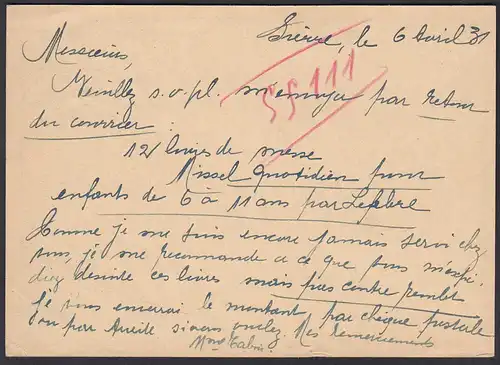 Sierre, le 6 Avril 31
Messieurs,
55111
Veuillez s.v.pl. m'envoyer par retour
du courrier :
12 livres de messe
Missel Quotidien pour
enfants de 6 à 11 ans par Lefebre
Comme je me suis encore jamais servi chez
vous, je me recommande à ce que vous m'expé-
diez desuite ces livres mais pas contre rembt
Je vous enverrai le montant par chèque postale
ou par Mes remerciements
Mme